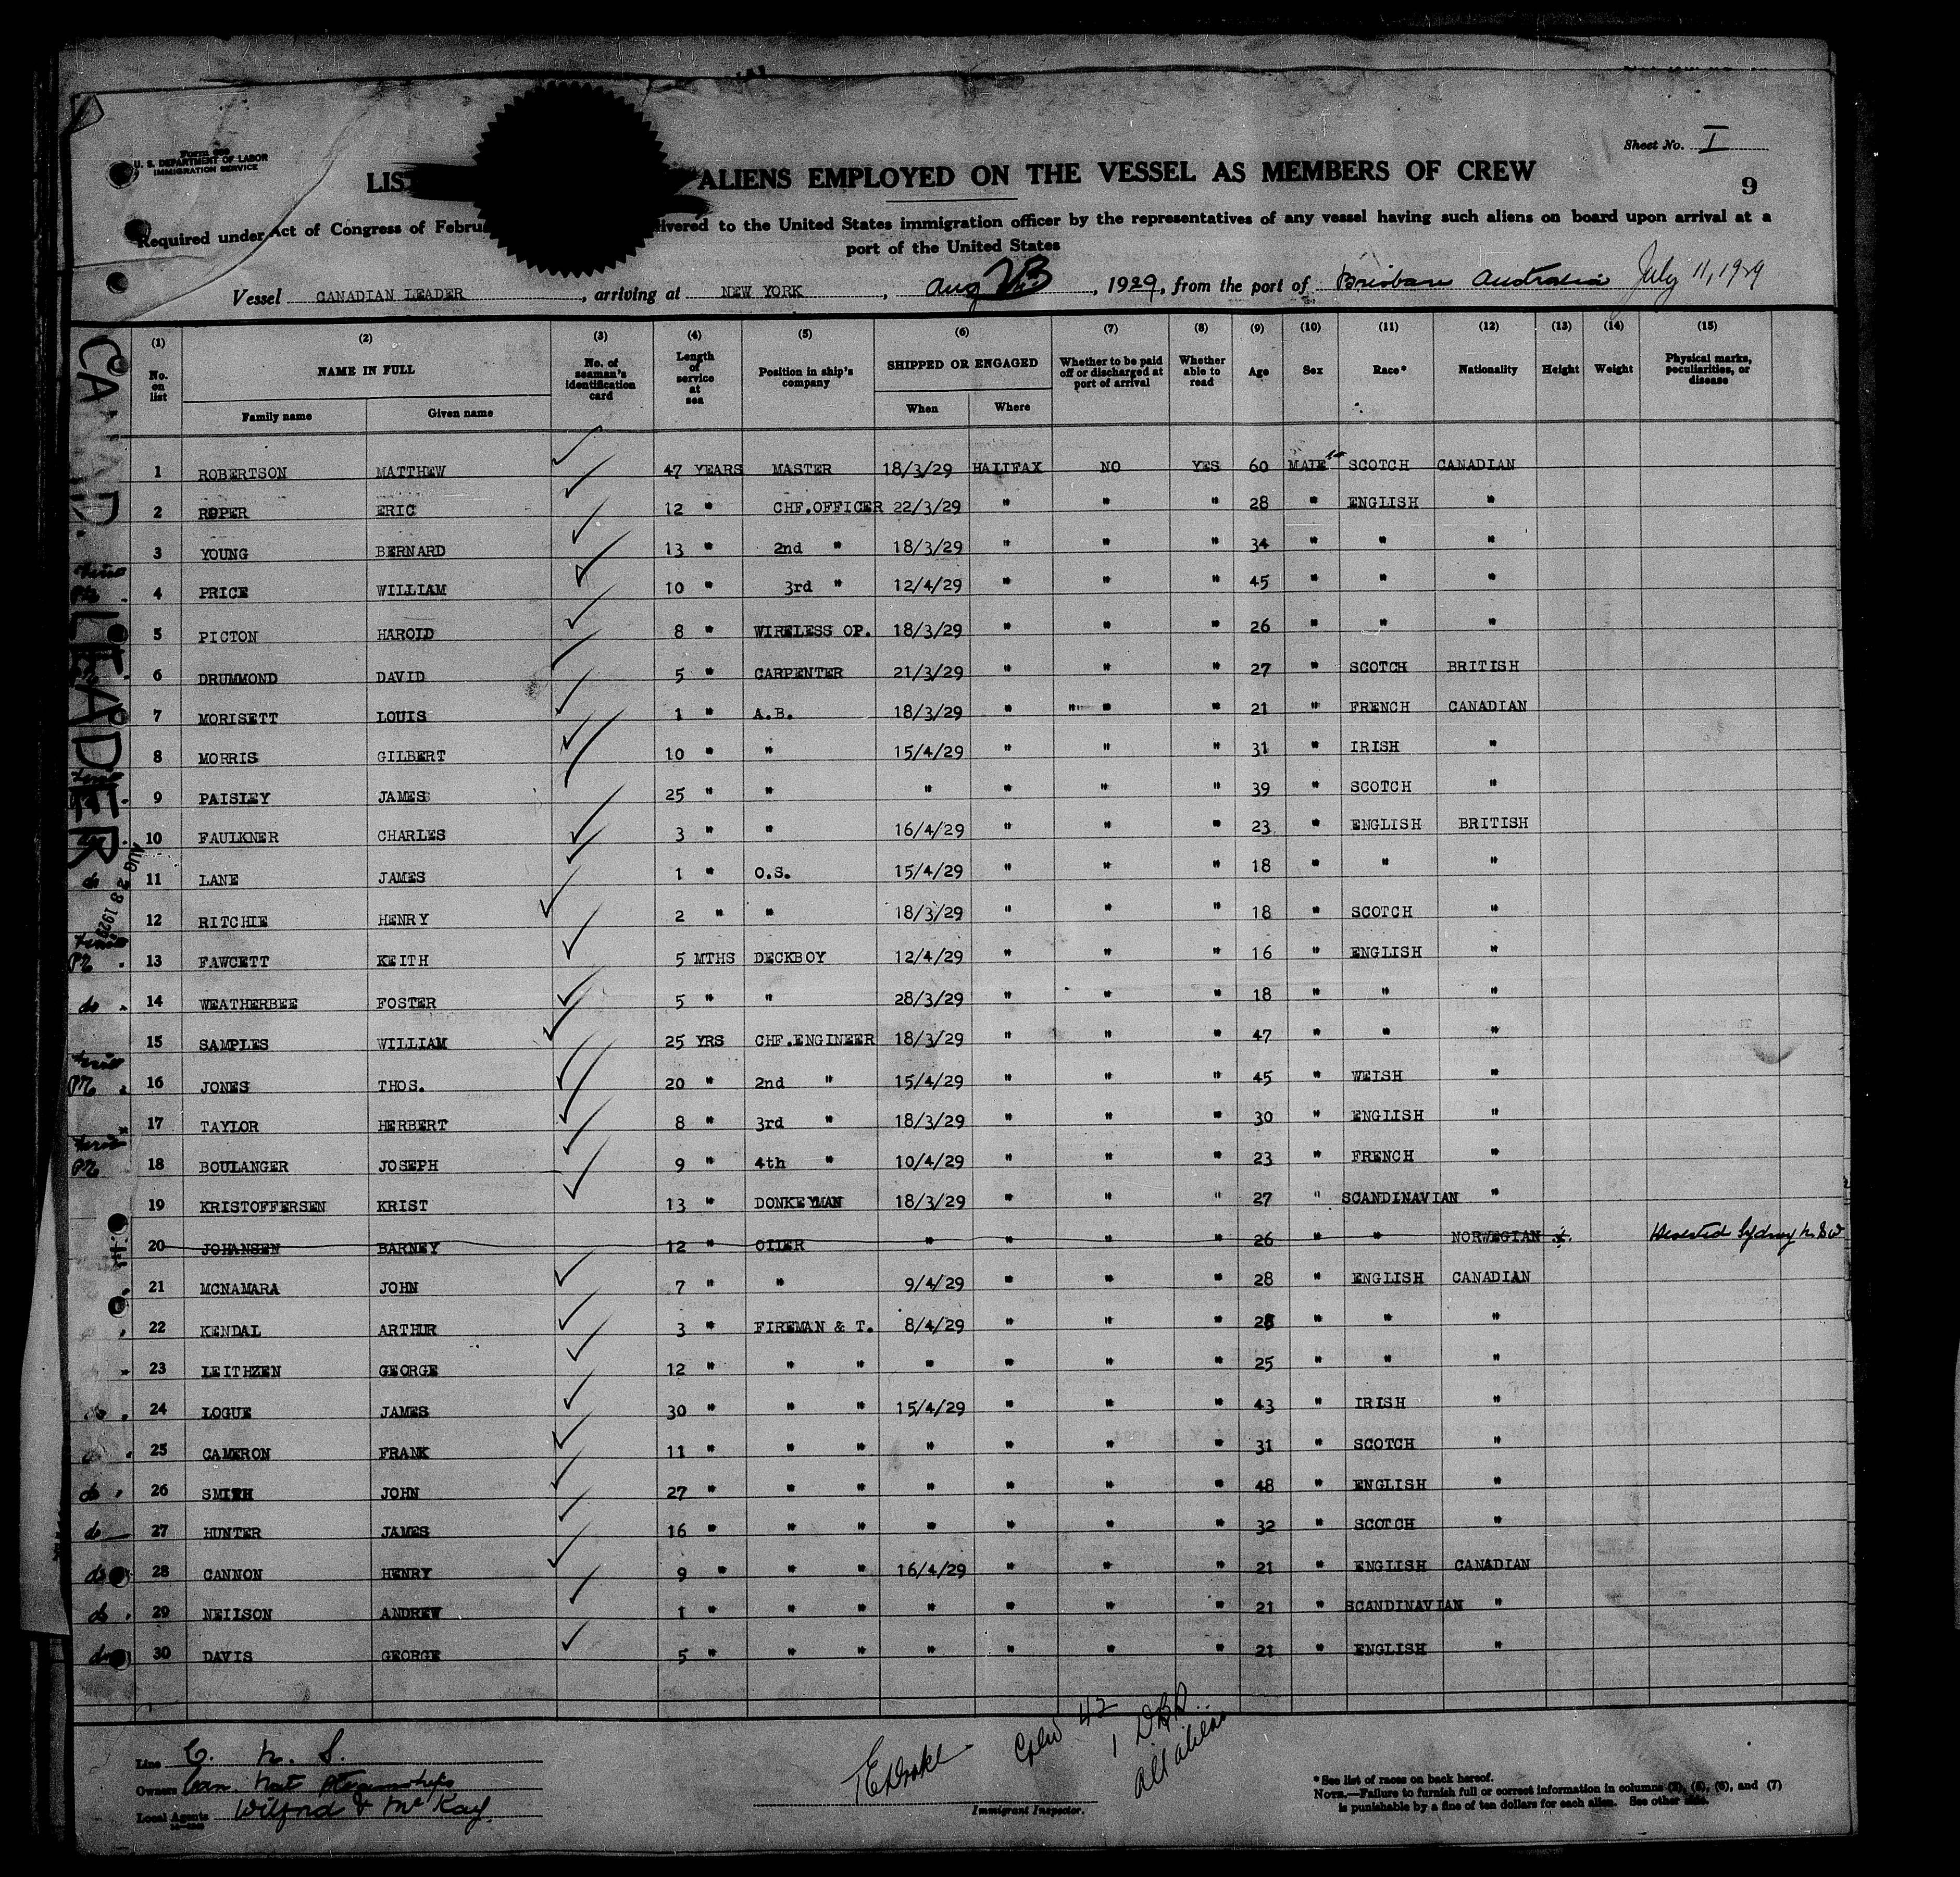 Sheet No. I
Form 680
U. S. DEPARTMENT OF LABOR
IMMIGRATION SERVICE
LIST ALIENS EMPLOYED ON THE VESSEL AS MEMBERS OF CREW
9
Required under Act of Congress of Februa livered to the United States immigration officer by the representatives of any vessel having such aliens on board upon arrival at a
port of the United States
Vessel CANADIAN LEADER, arriving at NEW YORK, Aug 23, 1929, from the port of Brisbane Australia July 11, 1929
CANAD. LEADER
AUG 23 1929
(1) (2) (3) (4) (5) (6) (7) (8) (9) (10) (11) (12) (13) (14) (15)
No. on list NAME IN FULL No. of seaman's identification card Length of service at sea Position in ship's company SHIPPED OR ENGAGED Whether to be paid off or discharged at port of arrival Whether able to read Age Sex Race* Nationality Height Weight Physical marks, peculiarities, or disease
Family name Given name When Where
1 ROBERTSON MATTHEW 47 YEARS MASTER 18/3/29 HALIFAX NO YES 60 MALE SCOTCH CANADIAN
2 ROPER ERIC 12 " CHF.OFFICER 22/3/29 " " " 28 " ENGLISH "
3 YOUNG BERNARD 13 " 2nd " 18/3/29 " " " 34 " " "
4 PRICE WILLIAM 10 " 3rd " 12/4/29 " " " 45 " " "
5 PICTON HAROLD 8 " WIRELESS OP. 18/3/29 " " " 26 " " "
6 DRUMMOND DAVID 5 " CARPENTER 21/3/29 " " " 27 " SCOTCH BRITISH
7 MORISETT LOUIS 1 " A.B. 18/3/29 " " " " 21 " FRENCH CANADIAN
8 MORRIS GILBERT 10 " " 15/4/29 " " " 31 " IRISH "
9 PAISLEY JAMES 25 " " " " " " 39 " SCOTCH "
10 FAULKNER CHARLES 3 " " 16/4/29 " " " 23 " ENGLISH BRITISH
do 11 LANE JAMES 1 " O.S. 15/4/29 " " " 18 " " "
12 RITCHIE HENRY 2 " " 18/3/29 " " " 18 " SCOTCH "
13 FAWCETT KEITH 5 MTHS DECKBOY 12/4/29 " " " 16 " ENGLISH "
do 14 WEATHERBEE FOSTER 5 " " 28/3/29 " " " 18 " " "
15 SAMPLES WILLIAM 25 YRS CHF.ENGINEER 18/3/29 " " " 47 " " "
16 JONES THOS. 20 " 2nd " 15/4/29 " " " 45 " WELSH "
17 TAYLOR HERBERT 8 " 3rd " 18/3/29 " " " 30 " ENGLISH "
18 BOULANGER JOSEPH 9 " 4th " 10/4/29 " " " 23 " FRENCH "
19 KRISTOFFERSEN KRIST 13 " DONKEYMAN 18/3/29 " " " 27 " SCANDINAVIAN "
20 JOHANSEN BARNEY 12 " OILER " " " " 26 " " NORWEGIAN Deserted Sydney N.S.W
21 MCNAMARA JOHN 7 " " 9/4/29 " " " 28 " ENGLISH CANADIAN
22 KENDAL ARTHUR 3 " FIREMAN & T. 8/4/29 " " " 28 " " "
23 LEITHZEN GEORGE 12 " " " " " " " 25 " " "
24 LOGUE JAMES 30 " " " 15/4/29 " " " 43 " IRISH "
25 CAMERON FRANK 11 " " " " " " " 31 " SCOTCH "
do 26 SMITH JOHN 27 " " " " " " " 48 " ENGLISH "
do 27 HUNTER JAMES 16 " " " " " " " 32 " SCOTCH "
do 28 CANNON HENRY 9 " " " 16/4/29 " " " 21 " ENGLISH CANADIAN
do 29 NEILSON ANDREW 1 " " " " " " " 21 " SCANDINAVIAN "
do 30 DAVIS GEORGE 5 " " " " " " " 21 " ENGLISH "
Crew 42
1 DBD
All aliens
Line C. N. S.
Owners Can Nat Steamships
Local Agents Wilford & McKay
Immigrant Inspector.
*See list of races on back hereof.
NOTE.—Failure to furnish full or correct information in columns (2), (5), (6), and (7)
is punishable by a fine of ten dollars for each alien. See other side.